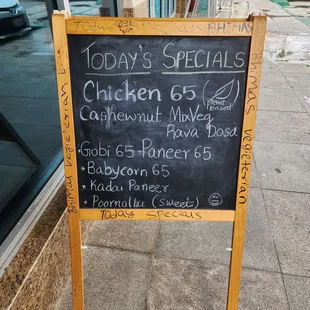 Today's Specials
Chicken 65
Plant based
Cashewnut MixVeg
Rava Dosa
Gobi 65 - Paneer 65
• Babycorn 65
• Kadai Paneer
• Poornallu (sweet)
Today specials
Bhimas vegeterian